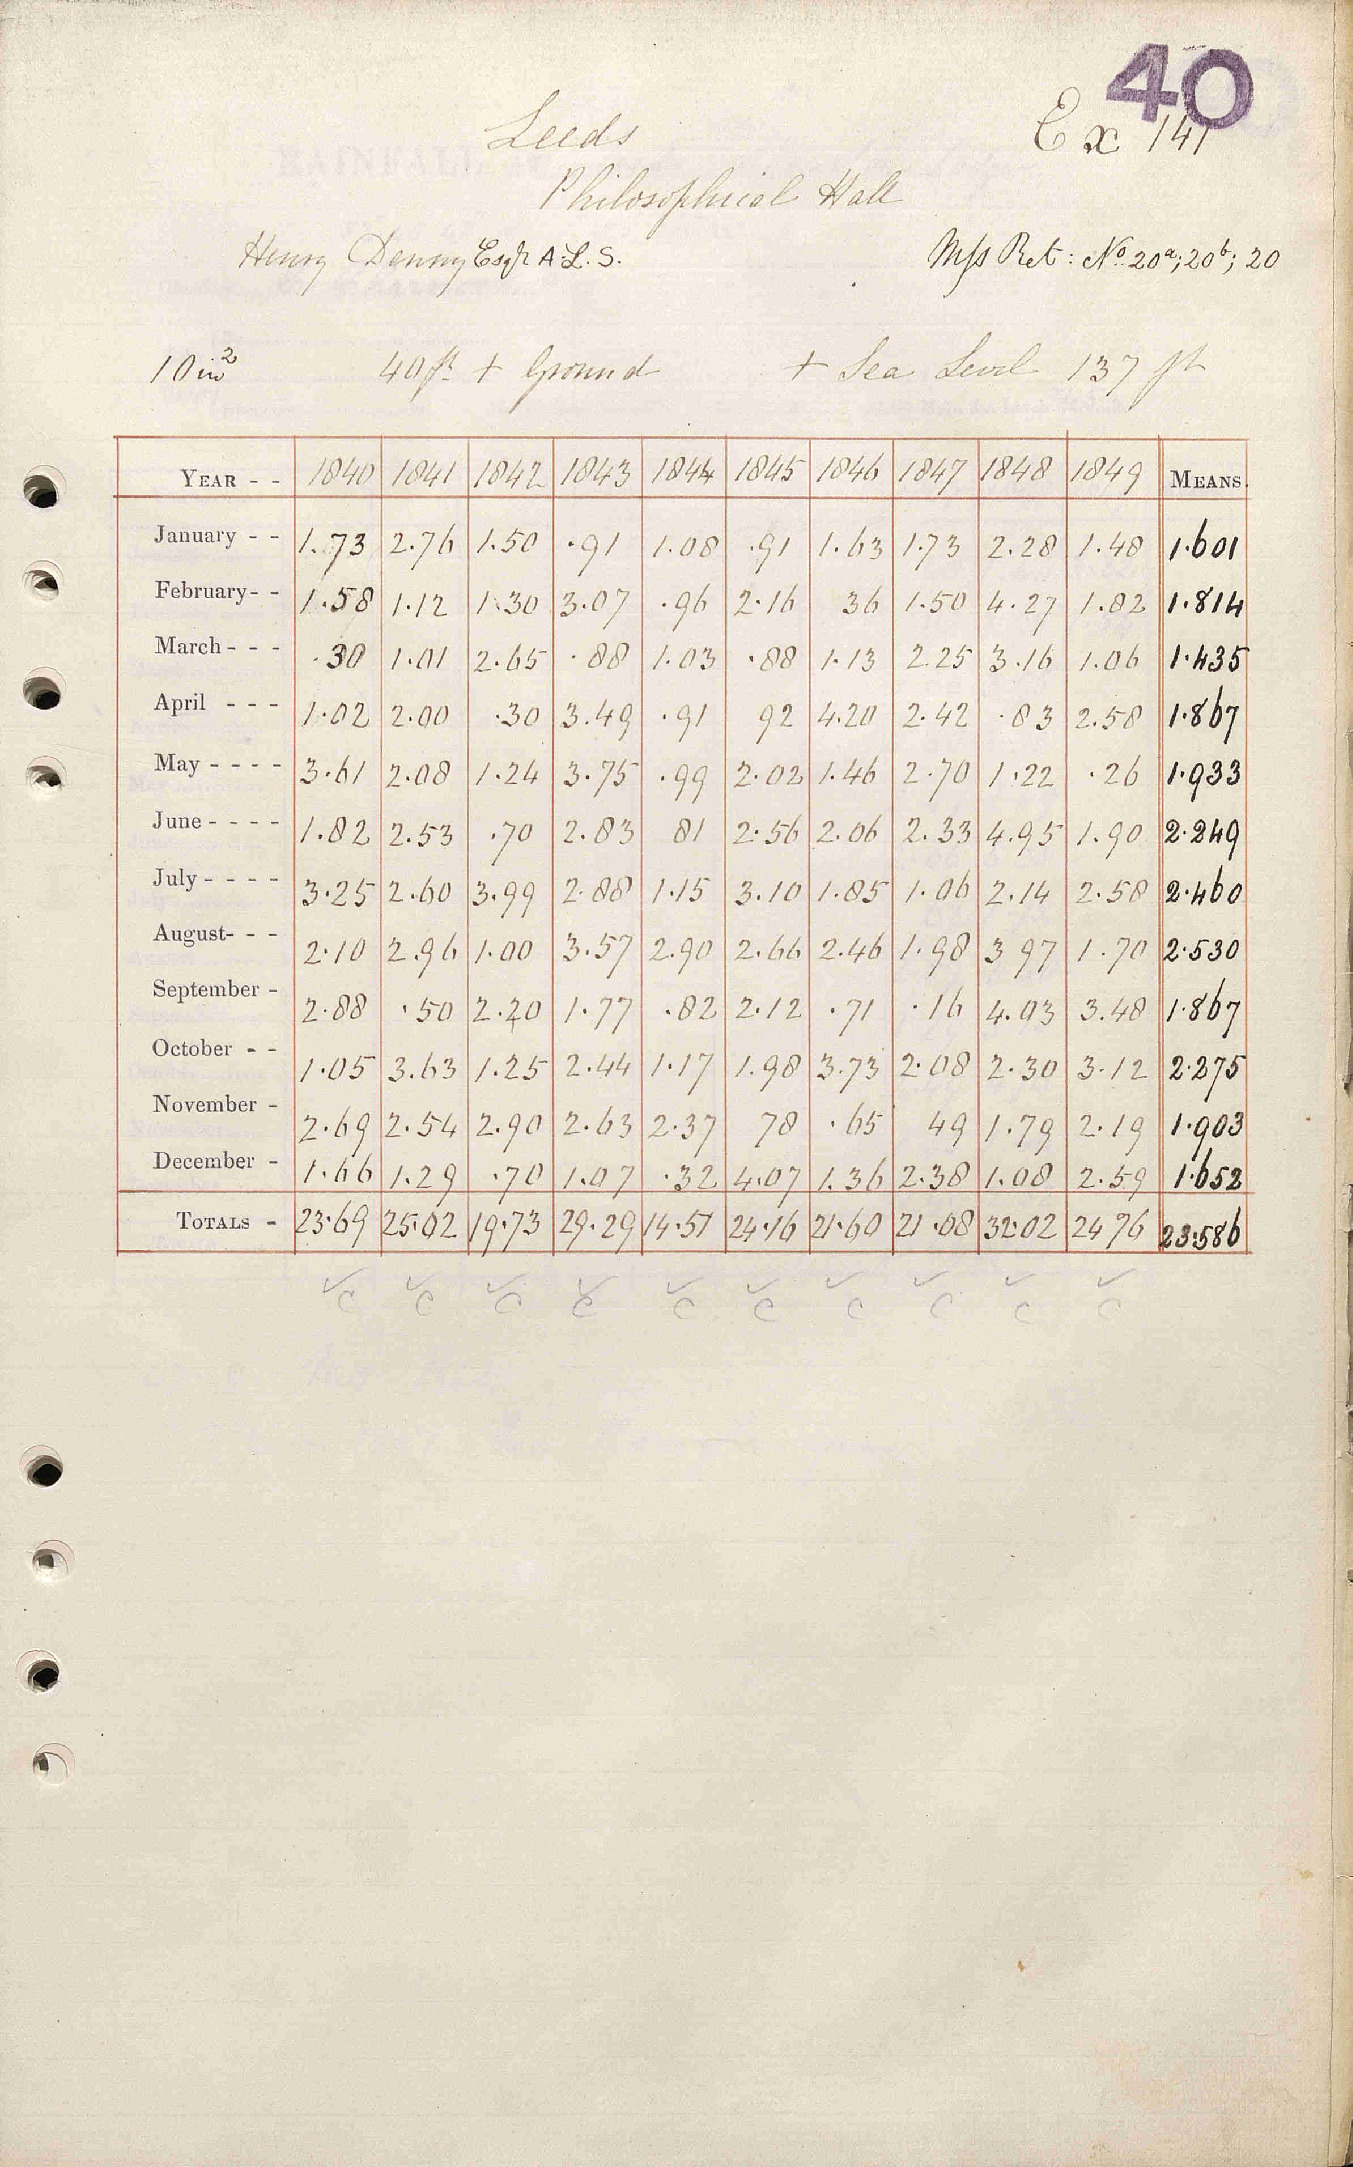 40
Leeds Ex 141
Philosophical Hall
Henry Denny Esqr A.L.S. Mss Ret: No 20a; 20b; 20
10 in2 40 ft + Ground + Sea Level 137 ft
YEAR - - 1840 1841 1842 1843 1844 1845 1846 1847 1848 1849 MEANS.
January - - 1.73 2.76 1.50 .91 1.08 .91 1.63 1.73 2.28 1.48 1.601
February - - 1.58 1.12 1.30 3.07 .96 2.16 36 1.50 4.27 1.82 1.814
March - - - .30 1.01 2.65 .88 1.03 .88 1.13 2.25 3.16 1.06 1.435
April - - - 1.02 2.00 .30 3.49 .91 92 4.20 2.42 .83 2.58 1.867
May - - - - 3.61 2.08 1.24 3.75 .99 2.02 1.46 2.70 1.22 .26 1.933
June - - - - 1.82 2.53 .70 2.83 81 2.56 2.06 2.33 4.95 1.90 2.249
July - - - - 3.25 2.60 3.99 2.88 1.15 3.10 1.85 1.06 2.14 2.58 2.460
August - - - 2.10 2.96 1.00 3.57 2.90 2.66 2.46 1.98 3 97 1.70 2.530
September - 2.88 .50 2.20 1.77 .82 2.12 .71 .16 4.03 3.48 1.867
October - - 1.05 3.63 1.25 2.44 1.17 1.98 3.73 2.08 2.30 3.12 2.275
November - 2.69 2.54 2.90 2.63 2.37 78 .65 49 1.79 2.19 1.903
December - 1.66 1.29 .70 1.07 .32 4.07 1.36 2.38 1.08 2.59 1.652
TOTALS - 23.69 25.02 19.73 29.29 14.51 24.16 21.60 21.08 32.02 24 76 23.586
✓ ✓ ✓ ✓ ✓ ✓ ✓ ✓ ✓ ✓
C C C C C C C C C C